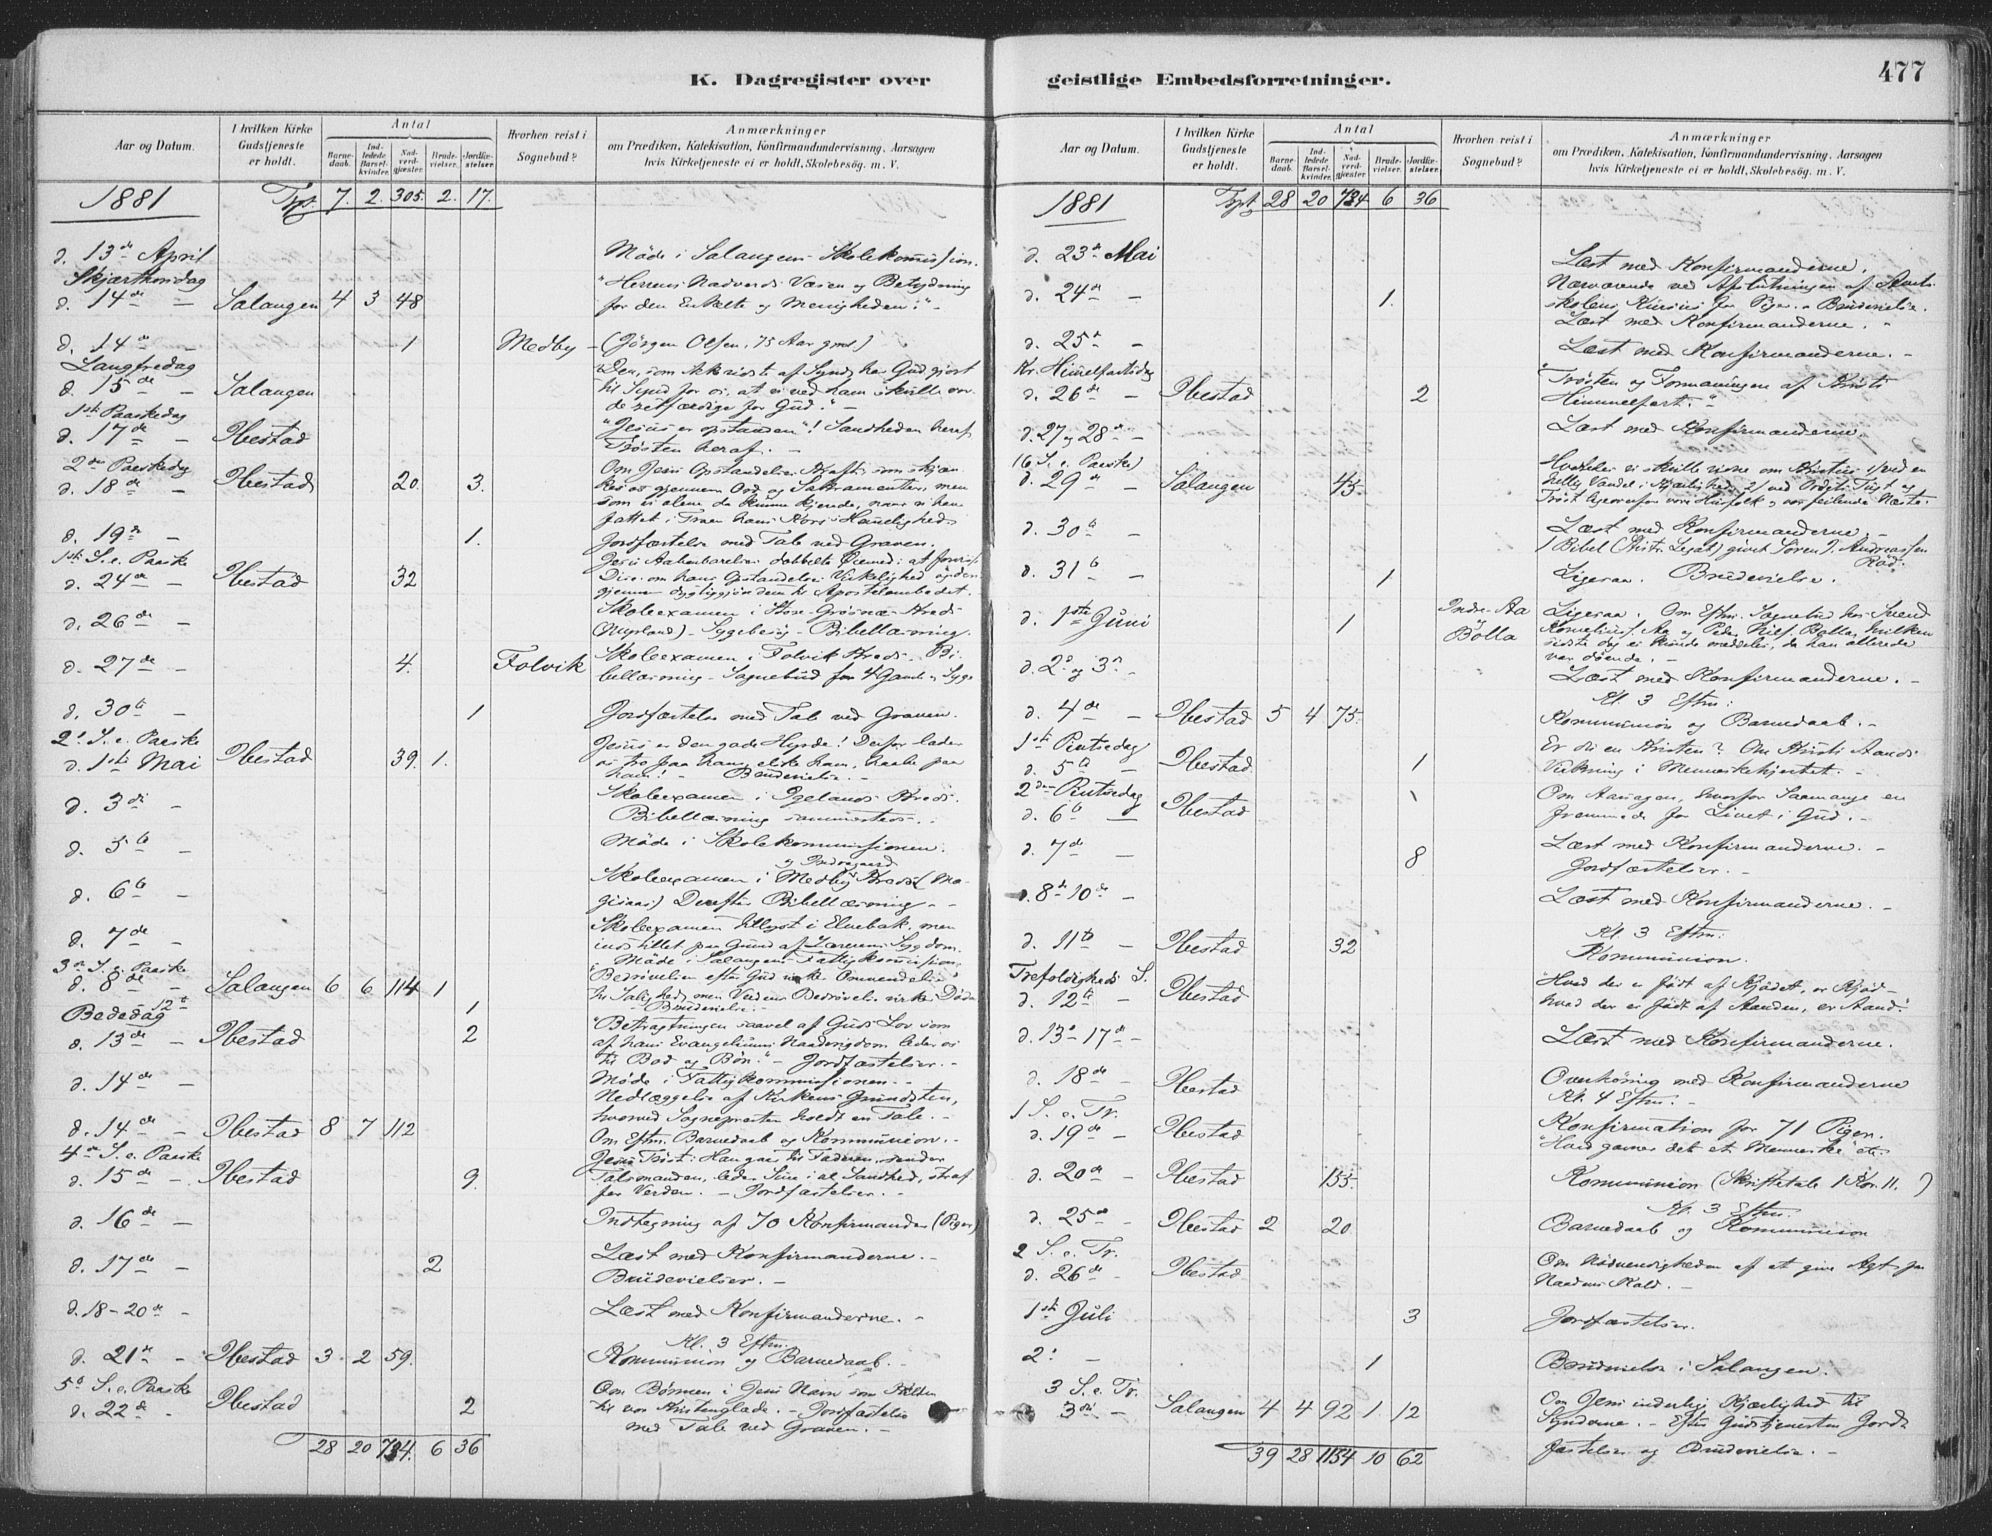 K. Dagregister over geistlige Embedsforretninger.
477
Aar og Datum.
I hvilken Kirke Gudstjeneste er holdt.
Antal
Barnedaab.
Indledede Barselkvinder.
Nadverdgjæster.
Brudevielser.
Jordfæstelser.
Hvorhen reist i Sognebud?
Anmærkninger
om Prædiken, Katekisation, Konfirmandundervisning, Aarsagen
hvis Kirketjeneste ei er holdt, Skolebesøg. m. V.
1881 Tpt 7. 2. 305. 2. 17.
d. 13de April Møde i Salangens Skolekommission.
Skjærthorsdag "Herrens Nadverds Væsen og Betydning
d. 14de — Salangen 4 3 48 for den Enkelte og Menigheden." —
d. 14de — 1 Medby — (Jørgen Olsen, 75 Aar gml)
Langfredag
d. 15de — Salangen til Synd for os, at vi ved ham skulle vor-
de retfærdige for Gud." —
1ste Paaskedag
d. 17de — Ibestad "Jesus er opstanden"! Sandheden heraf
Trøsten heraf. —
2den Paaskedag
d. 18de — Ibestad 20. 3.
d. 19de — 1. Jordfæstelse med Tale ved Graven.
1ste S. e. Paaske
d. 24de — Ibestad 32
d. 26de —
Bibellæsning.
d. 27de — 4. Folvik Skoleexamen i Folvik Kreds. Bi-
bellæsning — Sognebud for 4 Gamle & Syge
d. 30te — 1 Jordfæstelse med Tale ved Graven.
2. S. e. Paaske Jesus er den gode Hyrde! Derfor lader
d. 1ste Mai Ibestad 39. 1. os tro paa ham, elske ham, haabe paa
ham! — Brudevielse. —
d. 3die — Skoleexamen i Kreds.
Bibellæsning sammesteds. —
d. 5te — Møde i Skolekommissionen.
d. 6te — Skoleexamen i Medby Kreds
Derefter Bibellæsning —
d. 7de — Skoleexamen tillyst i Elvebak, men
indstillet paa Grund af Lærerens Sygdom.
Møde i Salangens Fattigkommission.
3die S. e. Paaske
d. 8de — Salangen 6 6 114 1
til Salighed, men Verdens Bedrøvelse virker Døden
12te 1 — Brudevielse. —
Bededag "Betragtningen saavel af Guds Lov som
d. 13de — Ibestad 2 af hans Evangeliums Naaderigdom leder os
til Bod og Bøn." — Jordfæstelser. —
d. 14de — Møde i Fattigkommissionen. —
Nedlæggelse af Kirkens Grundsten,
hvorved Sognepresten holdt en Tale. —
d. 14de — Ibestad 8 7 112 Om Eftm. Barnedaab og Kommunion. —
4de S. e. Paaske Jesu Trøst: Han gaar til Faderen, sender
d. 15de — Ibestad 9. Talsmanden, leder Sine i al Sandhed, straf-
fer Verden. — Jordfæstelser. —
d. 16de — Indtegning af 70 Konfirmander (Piger)
d. 17de — 2 Læst med Konfirmanderne. —
Brudevielser. —
d. 18–20de — Læst med Konfirmanderne. —
Kl. 3 Eftm.
d. 21de — Ibestad 3 2 59. Kommunion og Barnedaab. —
5te S. e. Paaske Om Bønnen i Jesu Navn som Kilden
d. 22de — Ibestad 2 til vor Kristenglæde. — Jordfæstelse
med Tale ved Graven. —
28 20 734. 6 36
Aar og Datum.
I hvilken Kirke Gudstjeneste er holdt.
Antal
Barnedaab.
Indledede Barselkvinder.
Nadverdgjæster.
Brudevielser.
Jordfæstelser.
Hvorhen reist i Sognebud?
Anmærkninger
om Prædiken, Katekisation, Konfirmandundervisning, Aarsagen
hvis Kirketjeneste ei er holdt, Skolebesøg. m. V.
1881 Tpt 28 20 734 6 36
d. 23de Mai Læst med Konfirmanderne.
d. 24de — 1. Nærværende ved Afslutningen af
skolens Kursus for Piger. Brudevielse.
Læst med Konfirmanderne. —
d. 25de — Læst med Konfirmanderne. —
Kr. Himmelfartsdag "Trøsten og Formaningen af Kristi
d. 26de — Ibestad 2 Himmelfart." —
d. 27 og 28de — Læst med Konfirmanderne.
6 S. e. Paaske
d. 29de — Salangen 45.
d. 30te — Læst med Konfirmanderne. —
1 Bibel (Legat) givet Søren J. Andreassen
d. 31te — 1 Ligesaa. Brudevielse.
d. 1ste Juni 1 Indre-Aa Bolla Ligesaa. Om Eftm. Sognebud hos
sidste dog ei kunde meddeles, da han allerede
var døende. —
d. 2den og 3die — Læst med Konfirmanderne. —
Kl. 3 Eftm:
d. 4de — Ibestad 5 4 75. Kommunion og Barnedaab. —
1ste Pintsedag Er du en Kristen? Om Kristi Aands
d. 5te — Ibestad 1 Virkning i Menneskehjertet. —
2den Pintsedag Om Aarsagen, hvorfor saa mange er
d. 6te — Ibestad 1 fremmede for Livet i Gud. —
d. 7de — 8 Læst med Konfirmanderne. —
Jordfæstelser. —
d. 8de–10de — Læst med Konfirmanderne. —
Kl. 3 Eftm:
d. 11te — Ibestad 32 Kommunion.
Trefoldigheds S. "Hvad der er født af Kjødet, er Kjød —
d. 12te — Ibestad hvad der er født af Aanden, er Aand."
d. 13–17de — Læst med Konfirmanderne.
d. 18de — Ibestad Overhøring med Konfirmanderne
Kl. 4 Eftm. —
1 S. e. Tr. Konfirmation for 71 Piger.
d. 19de — Ibestad "Hvad gavner det et Menneske etc.
d. 20de — Ibestad 155. Kommunion (Skriftetale 1 Kor. 11. )
Kl. 3 Eftm.
d. 25de — Ibestad 2 20. Barnedaab og Kommunion
2 S. e. Tr. Om Nødvendigheden af at give Agt paa
d. 26de — Ibestad Naadens Kald. —
1ste Juli 3 Jordfæstelser.
2. — 1 Brudevielse i Salangen.
3 S. e. Tr. Om Jesu inderlig Kjærlighed til
3die — Salangen 4 4 92 1 12 Synderne. — Efter Gudstjenesten Jord-
fæstelser og Brudevielse. —
39 28 1134 10 62